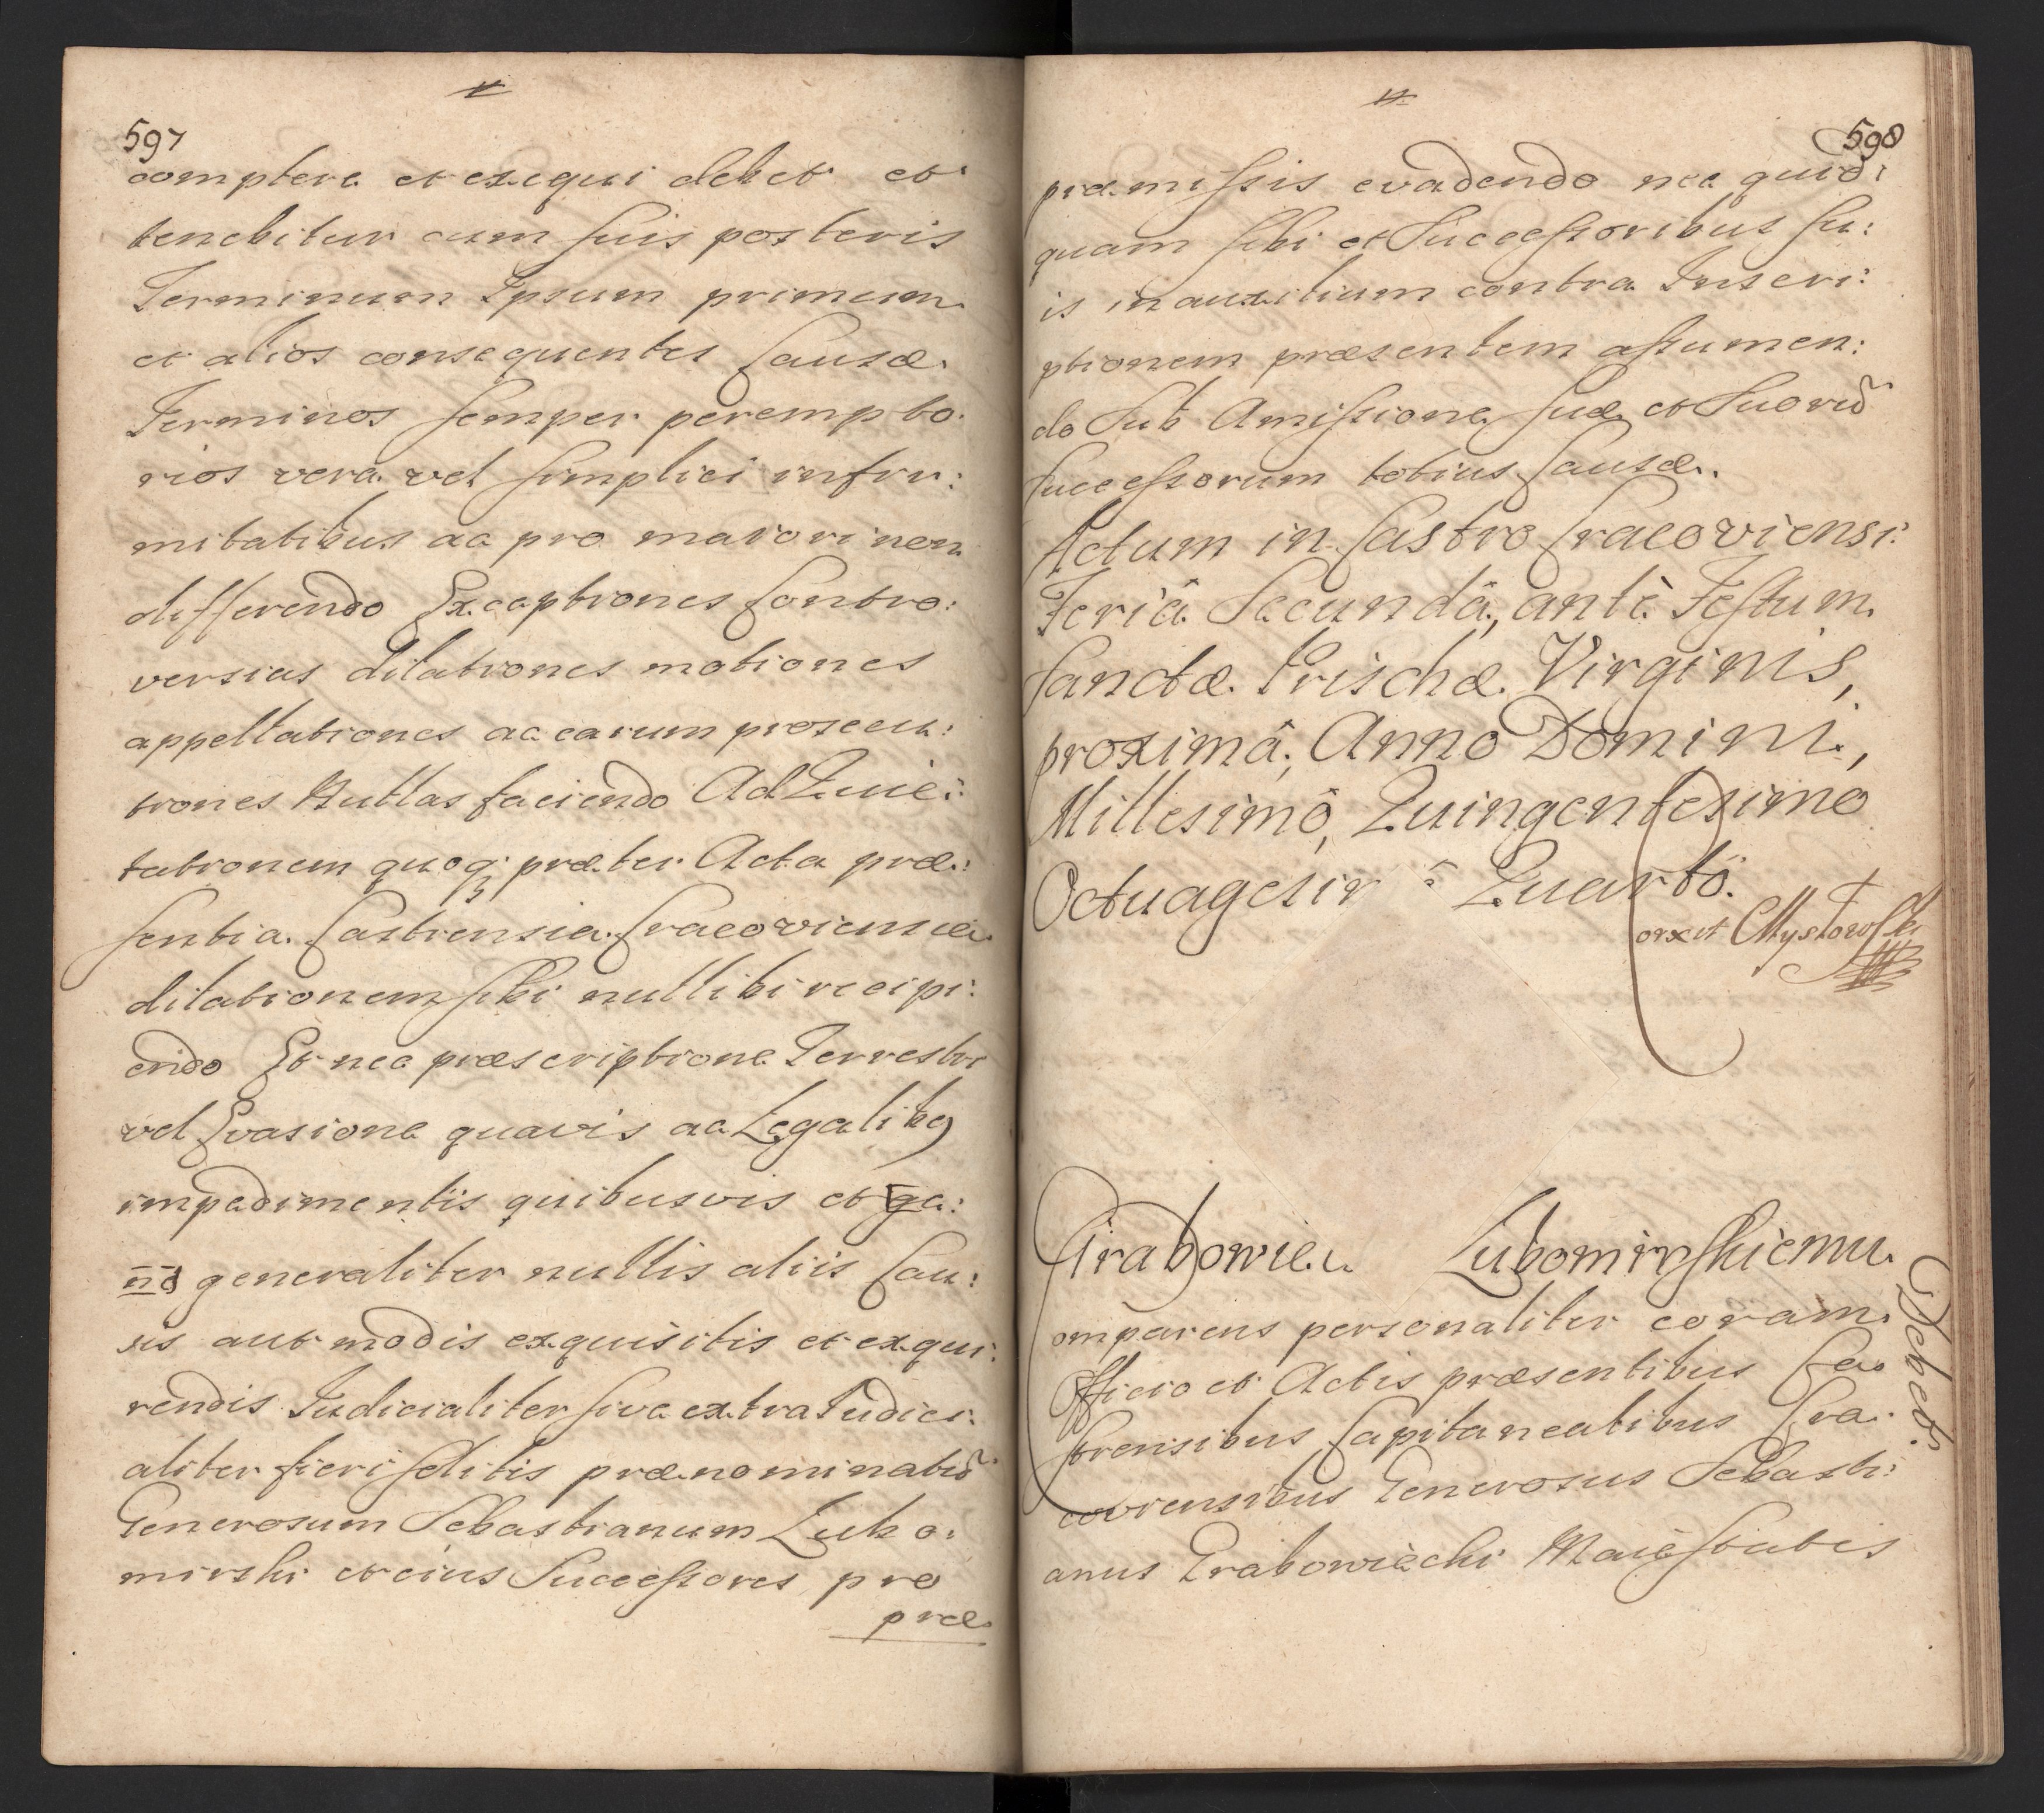 597
complere et exequi debet et
tenebitur cum suis posteris
Terminum Ipsum primum
et alios consequentes Causæ
Terminos semper perempto:
rios vera vel simplici infir:
mitatibus ac pro maiori non
differendo Exceptiones Contro:
versias dilationes motiones
appellationes ac earum prosecu:
tiones Nullas faciendo Ad Quie:
tationem quoq; præter Acta præ:
sentia Castrensia Cracoviensia
dilationem sibi nullibi recipi:
endo Et nec præscriptione Terrestri
vel Evasione quavis ac Legalibq
impedimentis quibusvis et ge:
generaliter nullis aliis Cau:
sis aut modis exquisitis et exqui:
rendis Iudicialiter sive extra Iudici:
aliter fieri solitis prænominatũ
Generosum Sebastianum Lubo:
mirski et eius Successores pro
præ
598
præmissis evadendo nec quid:
quam sibi et Successoribus su:
is in auxilium contra Inscri:
ptionem præsentem assumen:
do Sub Amissione suæ et Suorũ
Successorum totius Causæ.
Actum in Castro Cracoviensi
Feriâ Secundâ, antè Festum
Sanctæ Prischæ Virginis,
proximâ, Anno Domini,
Millesimô, Quingentesimo
Octuagesim ô Quartô.
Mystowski
Grabowie Lubomirskiemu
Debet
omparens personaliter coram
Officio et Actis præsentibus Ca
strensibus Capitanealibus Cra:
coviensibus Generosus Sebasti:
anus Grabowiecki Maiestatis